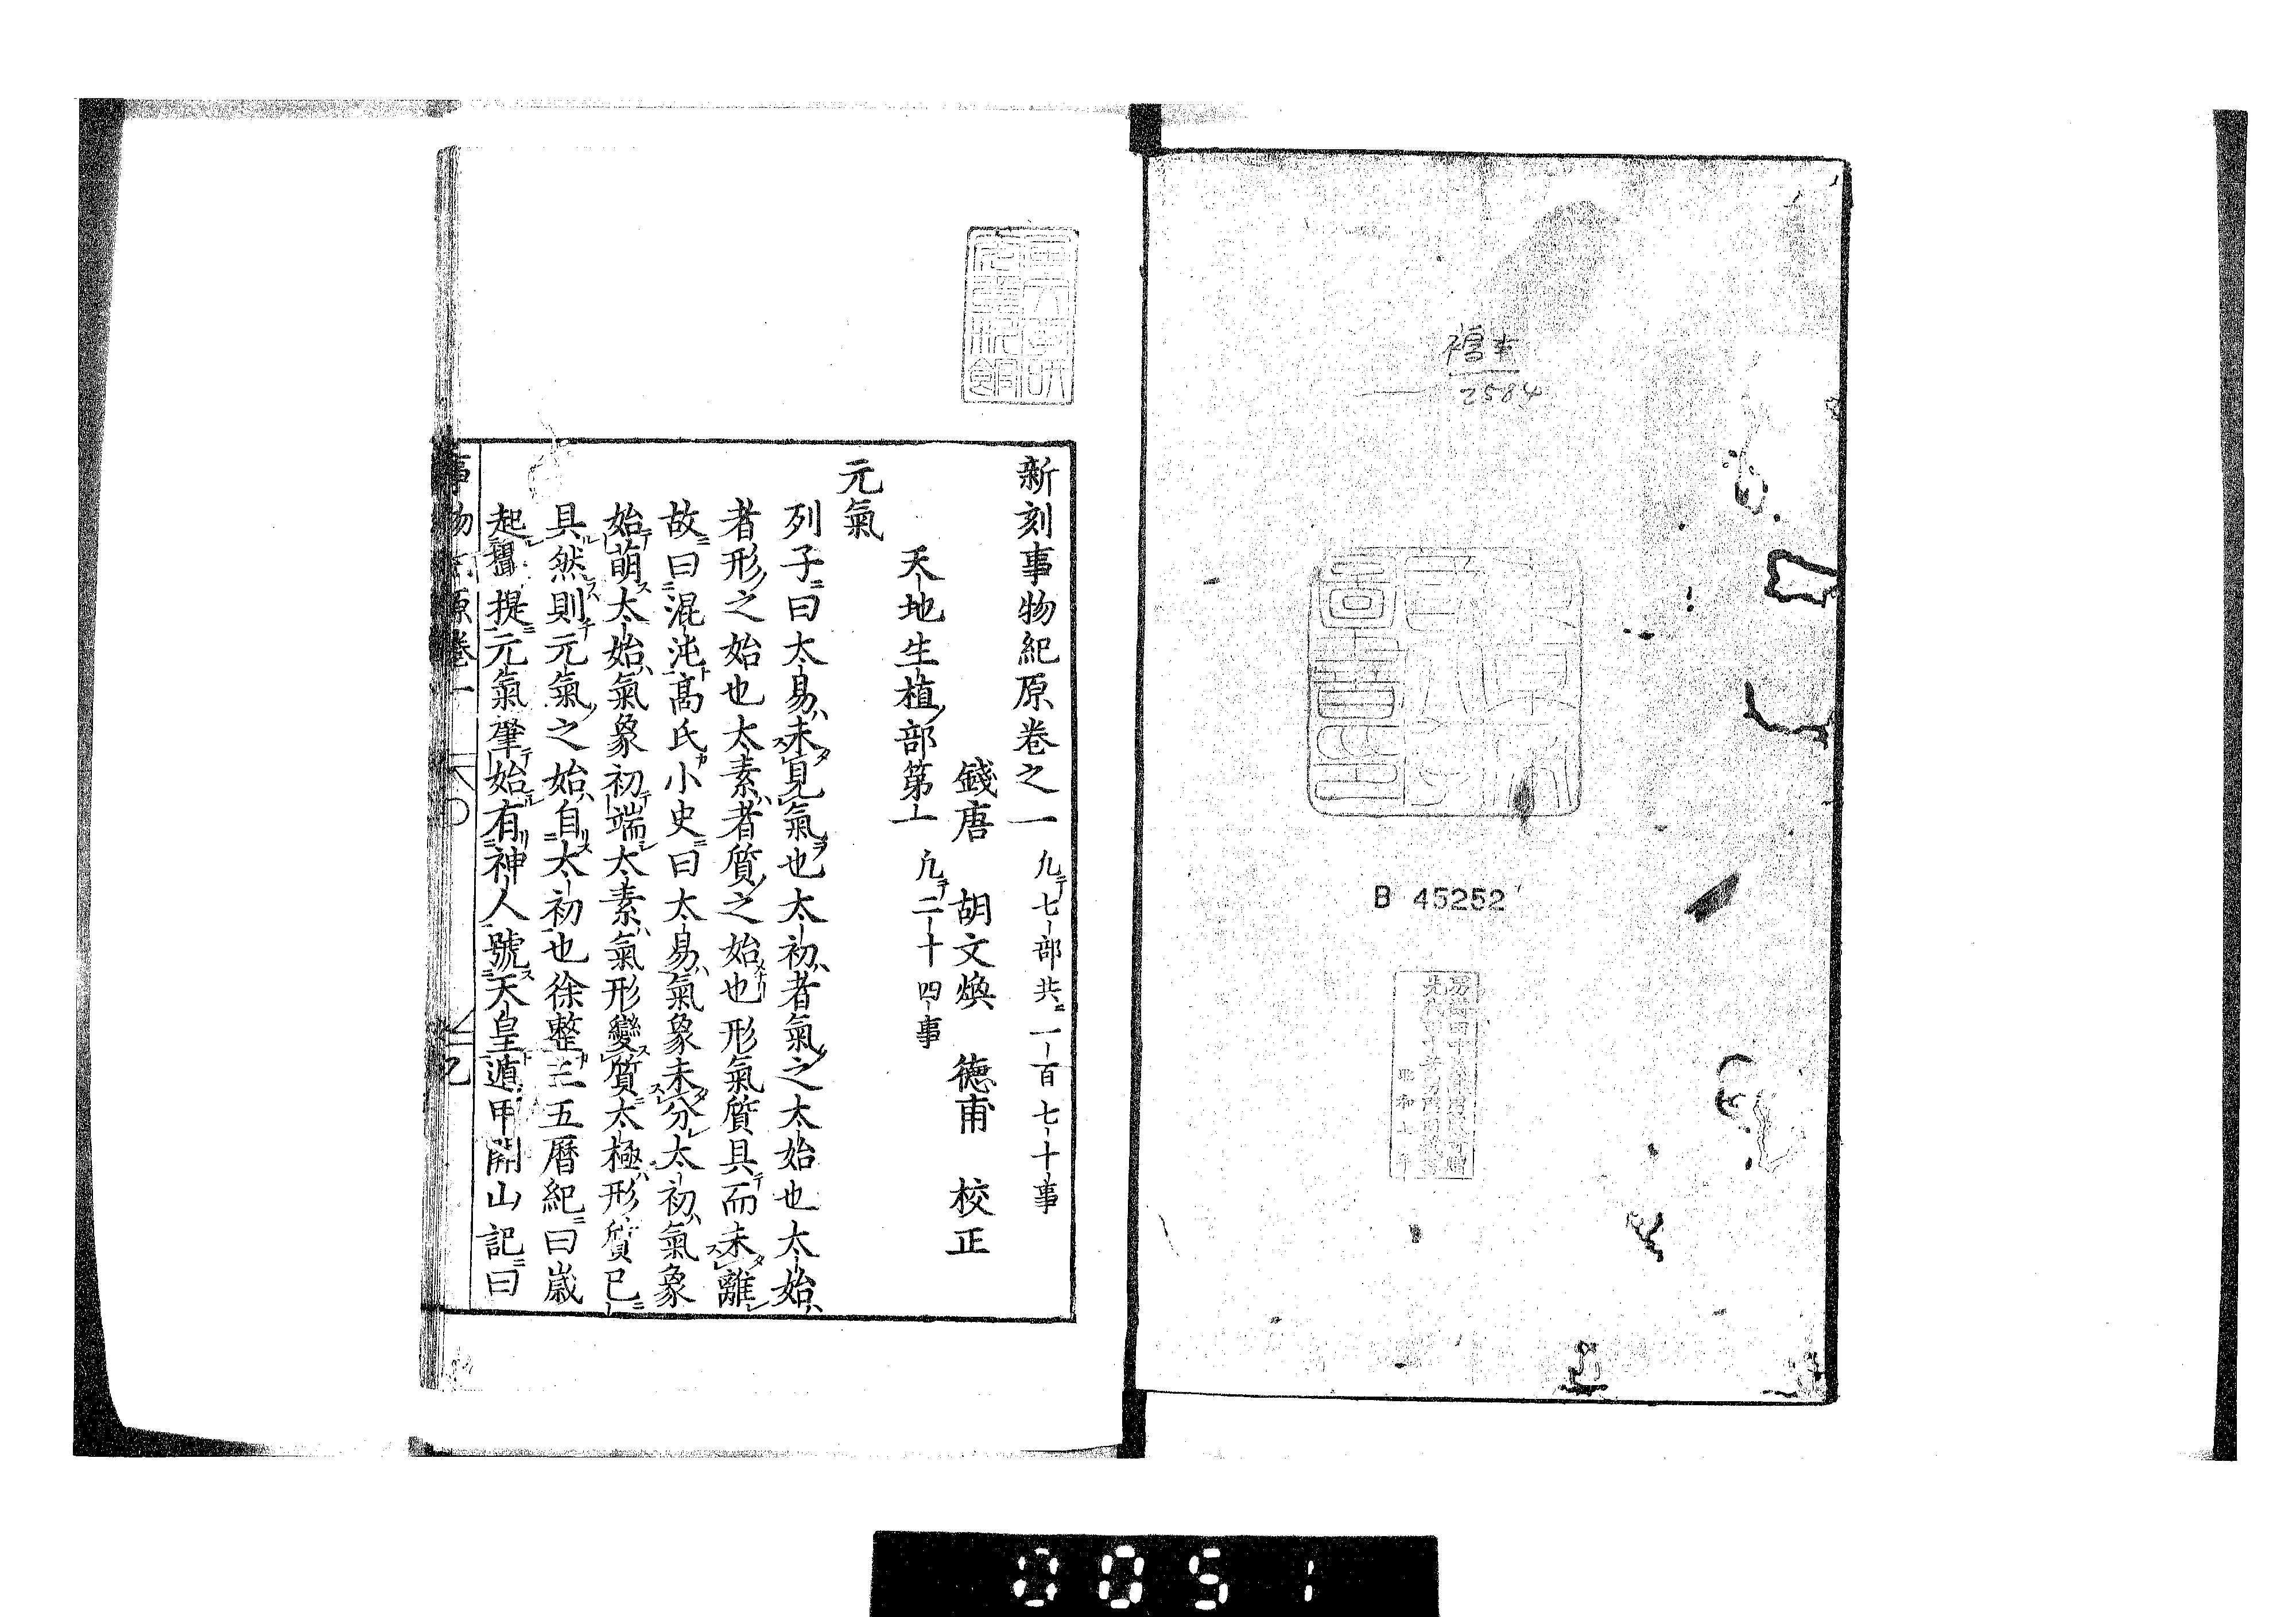 2584
B 45252
新刻事物紀原卷之一 凢七部共一百七十事
錢唐 胡文煥 德甫 校正
天地生植部第一 凢二十四事
元氣
列子曰太易未見氣也太初者氣之太始也太始
者形之始也太素者質之始也形氣質具而未離
故曰混沌高氏小史曰太易氣象未分太初氣象
始萌太始氣象初端太素氣形變質太極形質已
具然則元氣之始自太初也徐整三五曆紀曰歲
起攝提元氣肇始有神人號天皇遁甲開山記曰
事物紀原卷一
0051